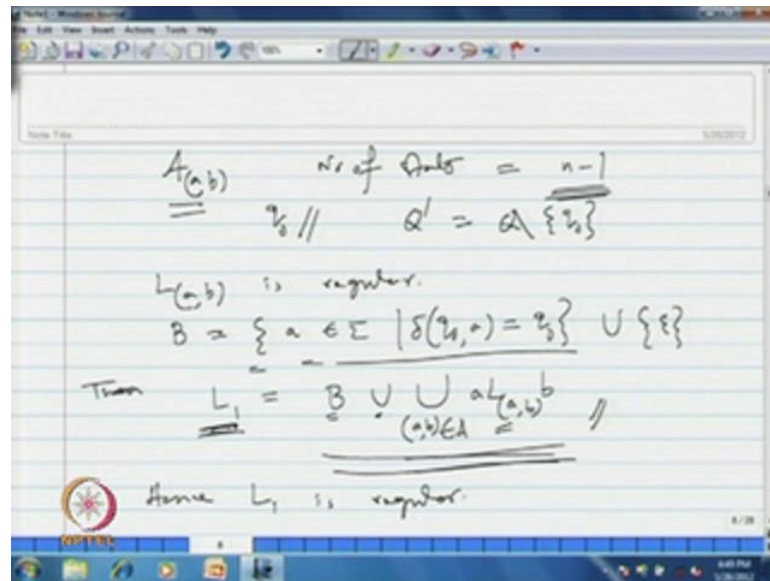 Note1 - Windows Journal
File Edit View Insert Actions Tools Help
100%
Note Title
5/28/2012
A(a,b) Nr of states = n-1
q₀ // Q' = Q \ {q₀}
L(a,b) is regular.
B = { a ∈ Σ | δ(q₀, a) = q₀ } ∪ {ε}
Then L₁ = B ∪ ∪ a L(a,b) b //
(a,b)∈A
Hence L₁ is regular.
NPTEL
8/28
8
6:45 PM
5/28/2012